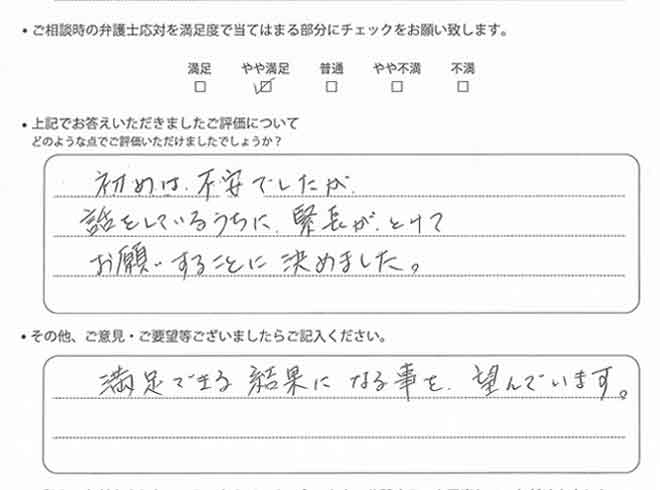 ・ご相談時の弁護士応対を満足度で当てはまる部分にチェックをお願い致します。
満足 やや満足 普通 やや不満 不満
□ ☑ □ □ □
・上記でお答えいただきましたご評価について
どのような点でご評価いただけましたでしょうか？
初めは、不安でしたが、
話をしているうちに、緊長が、とけて
お願いすることに決めました。
・その他、ご意見・ご要望等ございましたらご記入ください。
満足できる結果になる事を、望んでいます。